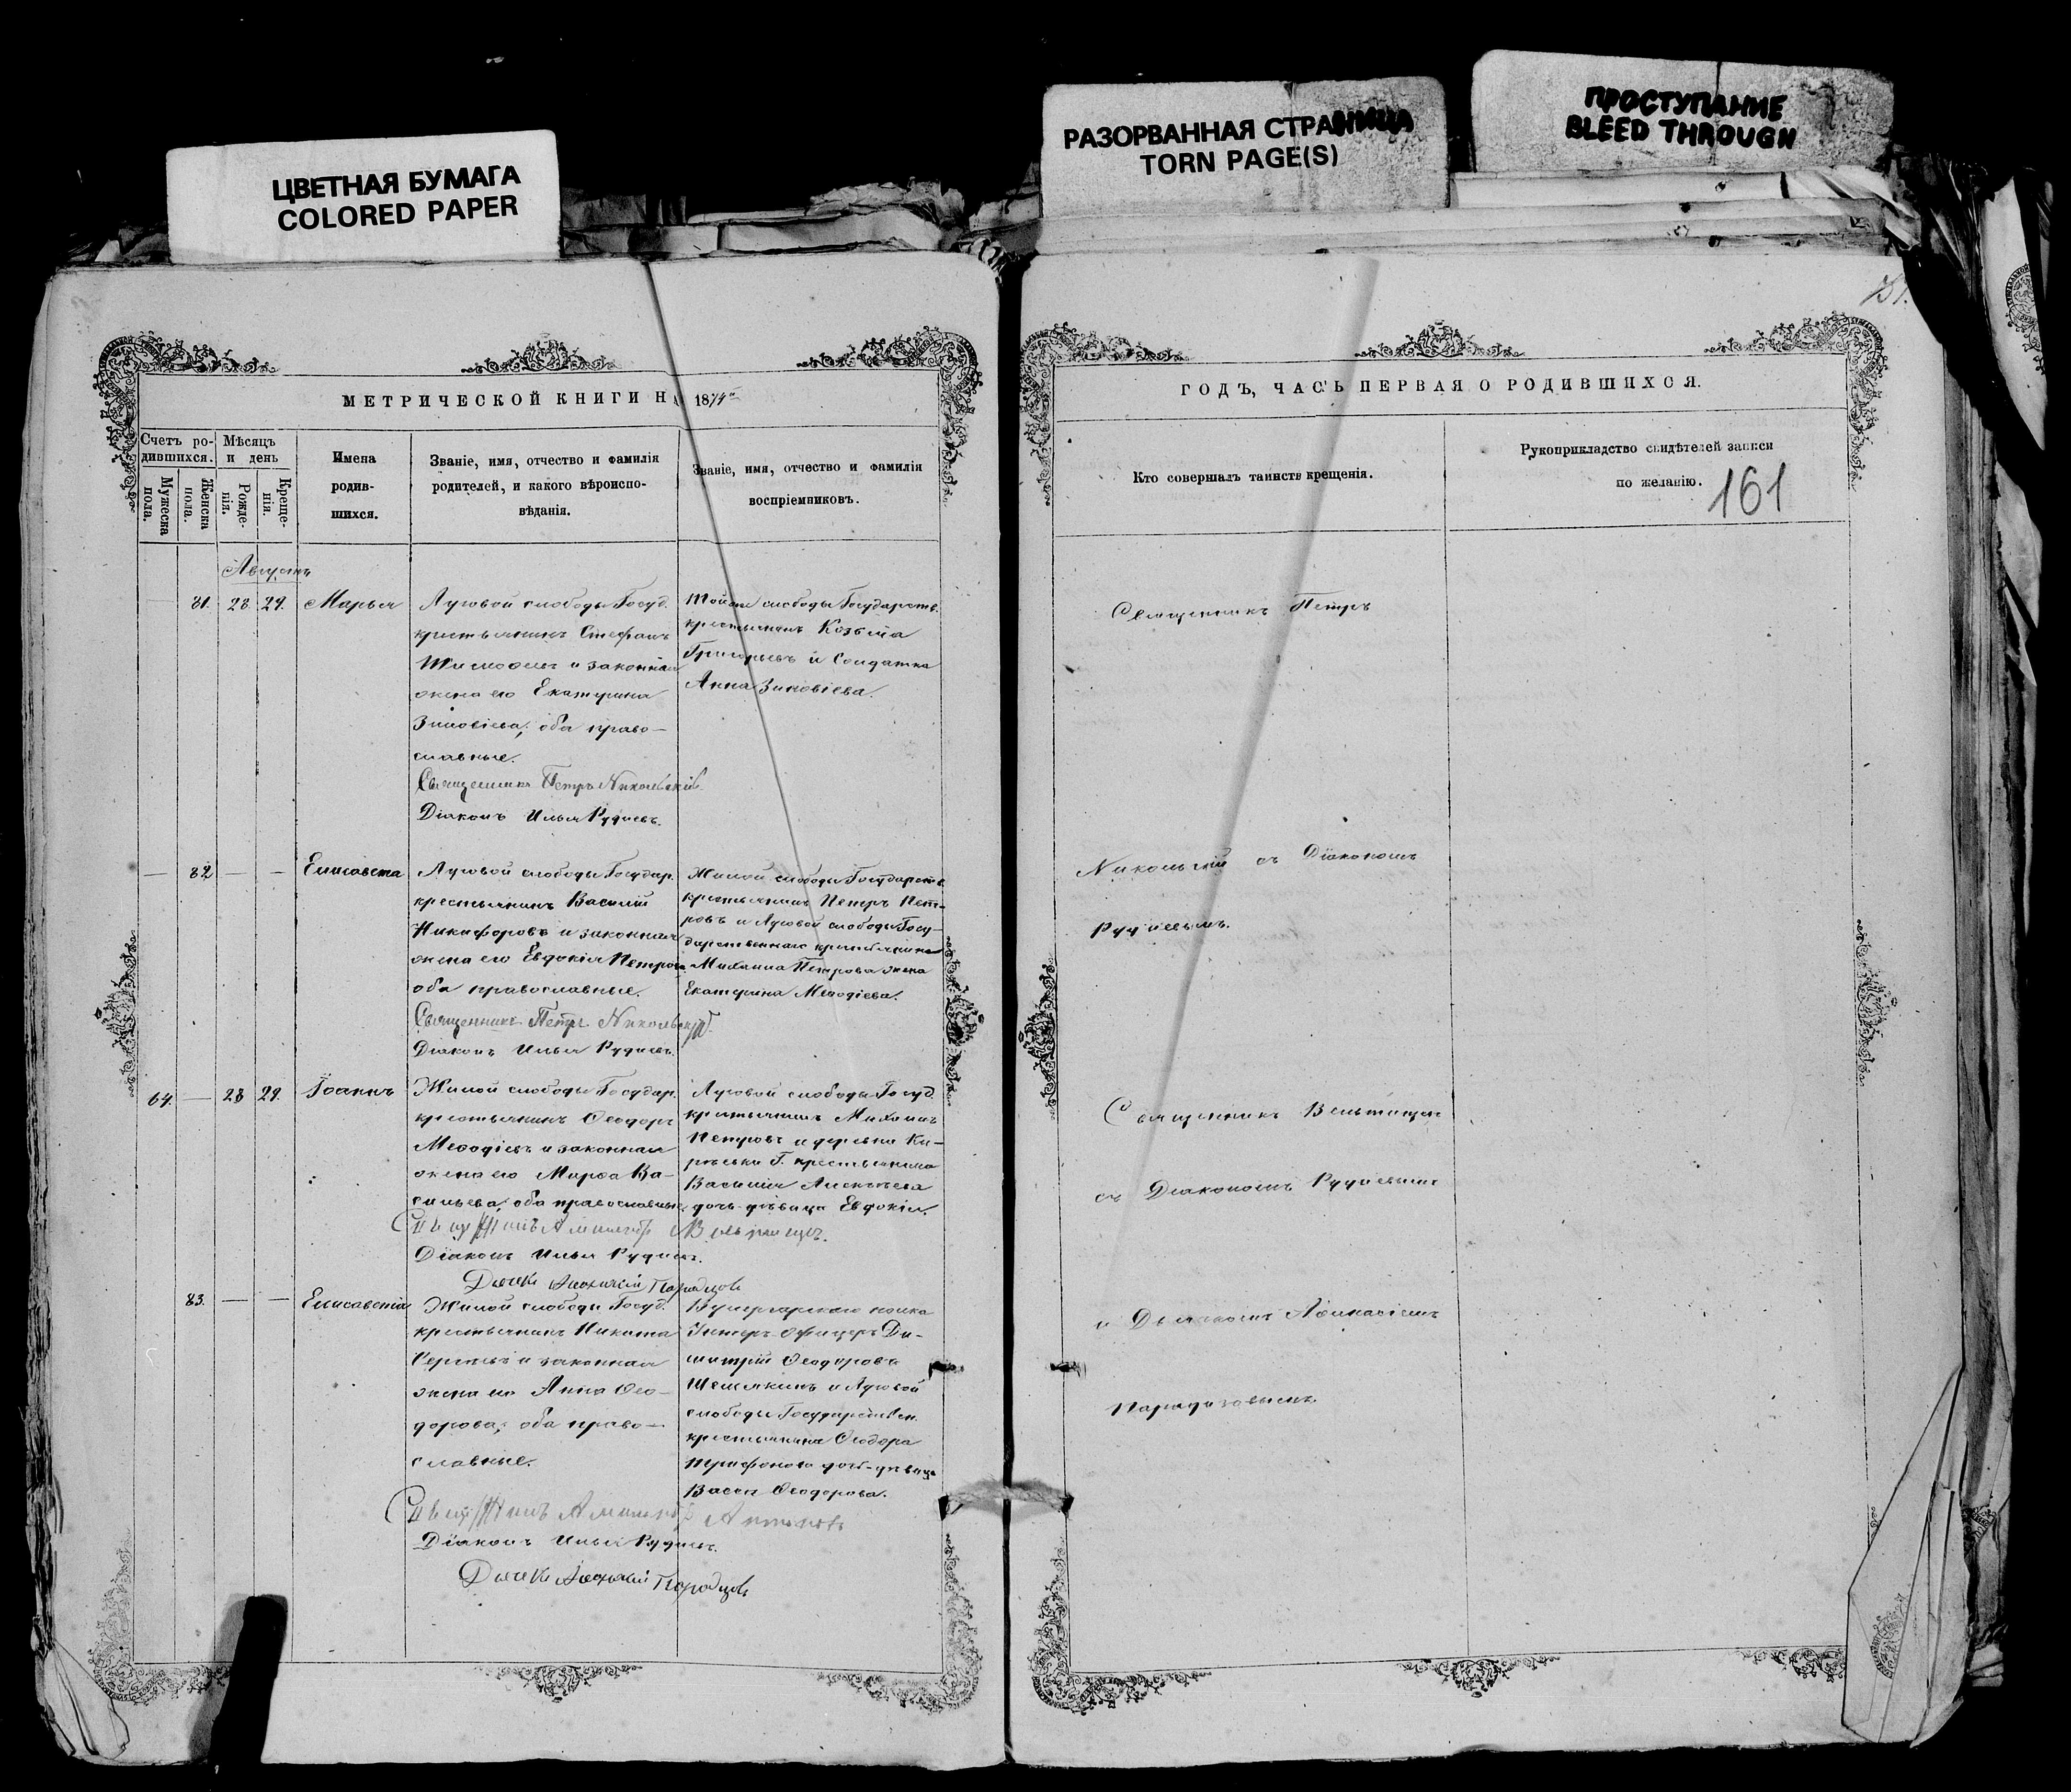 ЦВЕТНАЯ БУМАГА
COLORED PAPER
РАЗОРВАННАЯ СТРАНИЦА
TORN PAGE(S)
ПРОСТУПАНИЕ
BLEED THROUGH
МЕТРИЧЕСКОЙ КНИГИ НА 1874
Счетъ ро-
дившихся.
Мужеска
пола.
Женска
пола.
Мѣсяцъ
и день
Рожде-
нія.
Креще-
нія.
Имена
родив-
шихся.
Званіе, имя, отчество и фамилія
родителей, и какого вѣроиспо-
вѣданія.
Званіе, имя, отчество и фамилія
воспріемниковъ.
Августъ
81. 28. 29. Марья
Луговой слободы Госуд.
крестьянинъ Стефанъ
и законная
жена его Екатерина
Зиновіева, оба право-
славные.
Священникъ Петръ Никольскій
Діаконъ Илья Рудневъ.
Той же слободы Государств.
крестьянинъ Козьма
Григорьевъ и Солдатка
Анна Зиновіева.
— 82 — — Елисавета
Луговой слободы Государ.
крестьянинъ Василій
Никифоровъ и законная
жена его Евдокія Петрова
оба православные.
Священникъ Петръ Никольскій
Діаконъ Илья Рудневъ.
Жилой слободы Государств.
крестьянинъ Петръ Пет-
ровъ и Луговой слободы Госу-
дарственнаго крестьянина
Михаила Петрова жена
Екатерина Меѳодіева.
64. — 28 29. Іоаннъ
Жилой слободы Государ.
крестьянинъ Ѳеодоръ
Меѳодіевъ и законная
жена его Марѳа Ва-
сильева, оба православные
Діаконъ Илья Рудневъ.
Дьячекъ
Луговой слободы Госуд.
крестьянинъ Михаилъ
Петровъ и деревни Ки-
рѣевки Г. крестьянина
Василія Алексѣева
дочь-дѣвица Евдокія.
83. — — Елисавета
Жилой слободы Госуд.
крестьянинъ Никита
Сергѣевъ и законная
жена его Анна Ѳео-
дорова, оба право-
славные.
Діаконъ Илья Рудневъ.
Дьячекъ
полка
Унтеръ-офицеръ Ди-
митрій Ѳеодоровъ
Шемякинъ и Луговой
слободы Государствен.
крестьянина Ѳеодора
Трифонова дочь-дѣвица
Васса Ѳеодорова.
ГОДЪ, ЧАСЬ ПЕРВАЯ О РОДИВШИХСЯ.
Кто совершалъ таинств крещенія.
Рукоприкладство свидѣтелей записи
по желанію.
161
Священникъ Петръ
Никольскій съ Діакономъ
Рудневымъ.
Священникъ
съ Діакономъ Рудневымъ
и Дьячкомъ Аѳанасіемъ
Парадизовымъ.